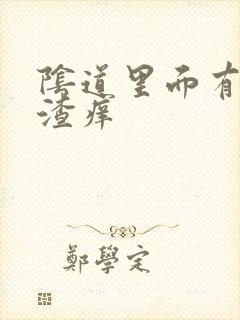 陰道里而有
渣痒
鄭學定